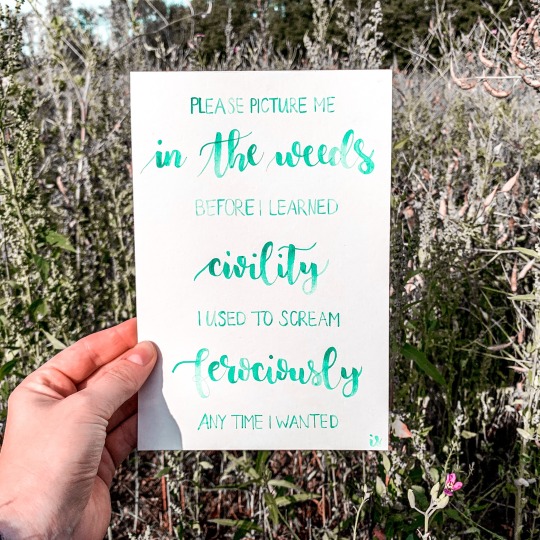 PLEASE PICTURE ME
in the weeds
BEFORE I LEARNED
civility
I USED TO SCREAM
ferociously
ANY TIME I WANTED